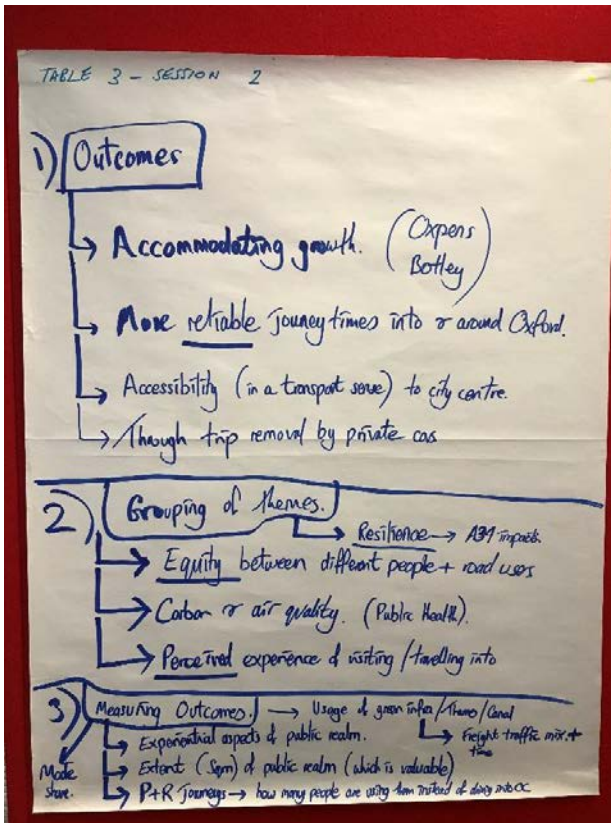 TABLE 3 - SESSION 2
1) Outcomes
→ Accommodating growth. (Oxpens Botley)
→ More reliable journey times into & around Oxford.
→ Accessibility (in a transport sense) to city centre.
→ Through trip removal by private cars
2) Grouping of themes.
→ Resilience → A34 impacts.
→ Equity between different people + road users
→ Carbon & air quality. (Public Health).
→ Perceived experience of visiting / travelling into
3) Measuring Outcomes. → Usage of green infra / Thames / Canal
→ Experiential aspects of public realm.
→ Freight traffic mix + time
Mode share.
→ Extent (Sqm) of public realm (which is valuable)
→ P+R journeys → how many people are using them instead of driving into OC